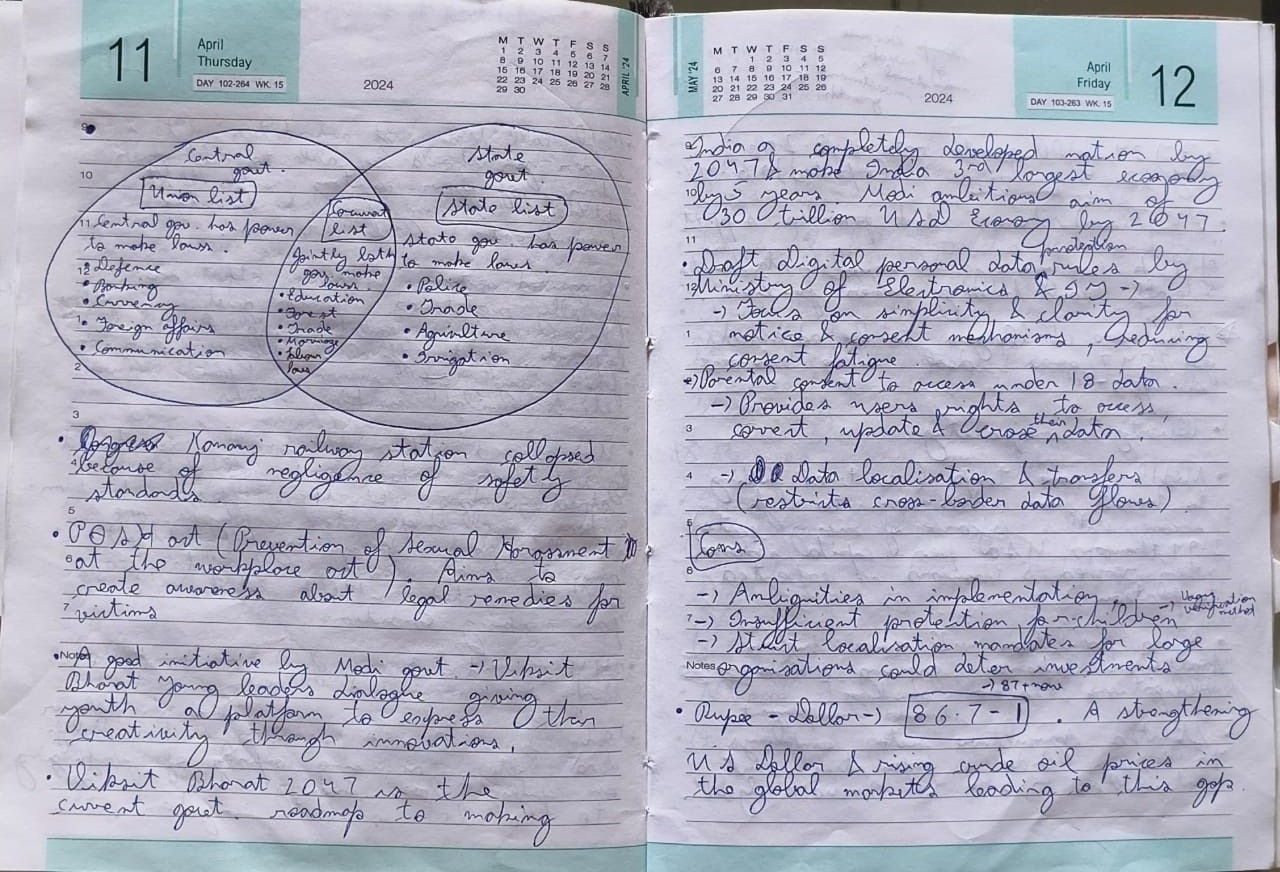 11
April
Thursday
DAY 102-264 WK. 15
2024
M T W T F S S
1 2 3 4 5 6 7
8 9 10 11 12 13 14
15 16 17 18 19 20 21
22 23 24 25 26 27 28
29 30
APRIL '24
9
10
11
12
1
2
3
4
5
6
7
Notes
Central
govt.
Union list
Central gov. has power
to make laws.
• Defence
• Banking
• Currency
• Foreign affairs
• Communication
list
Jointly both
gov. make
laws
• Education
• Forest
• Trade
• Marriage
• Labour
laws
State
govt.
State list
State gov. has power
to make laws.
• Police
• Trade
• Agriculture
• Irrigation
• Kannauj railway station collapsed
because of negligence of safety
standards
• POSH act (Prevention of Sexual Harassment
at the workplace act). Aims to
create awareness about legal remedies for
victims
• A good initiative by Modi govt -> Viksit
Bharat Young leaders dialogue giving
youth a platform to express their
creativity through innovations.
• Viksit Bharat 2047 is the
current govt. roadmap to making
MAY '24
M T W T F S S
1 2 3 4 5
6 7 8 9 10 11 12
13 14 15 16 17 18 19
20 21 22 23 24 25 26
27 28 29 30 31
2024
April
Friday
DAY 103-263 WK. 15
12
10
11
12
1
3
4
5
6
7
Notes
India a completely developed nation by
2047 & make India 3rd largest economy
by 5 years Modi ambitious aim of
30 trillion USD Economy by 2047.
protection
• Draft Digital personal data rules by
Ministry of Electronics & IT ->
-> Focus on simplicity & clarity for
notice & consent mechanisms, reducing
consent fatigue.
Parental consent to access under 18 data.
-> Provides users rights to access,
their
update & erase data.
-> Data localisation & transfers
(restricts cross-border data flows)
Cons
-> Ambiguities in implementation
-> Insufficient protection for children ->
verification
method
-> Strict localisation mandates for large
organisations could deter investments
-> 87 + now
• Rupee - Dollar -> 86.7 - 1. A strengthening
US Dollar & rising crude oil prices in
the global markets leading to this gap.